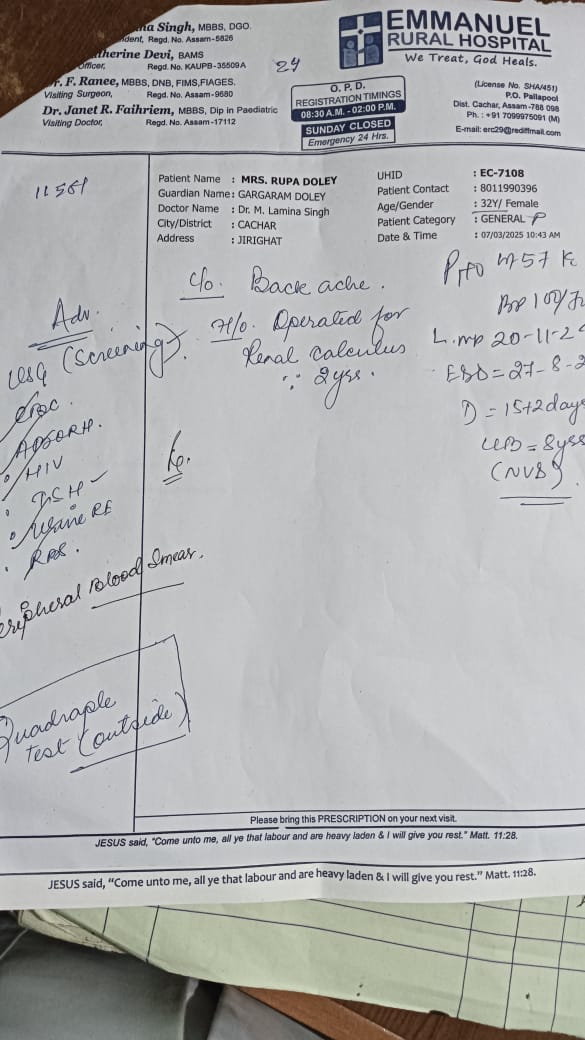 na Singh, MBBS, DGO.
dent, Regd. No. Assam-5826
therine Devi, BAMS
Officer, Regd. No. KAUPB-35509A
r. F. Ranee, MBBS, DNB, FIMS,FIAGES.
Visiting Surgeon, Regd. Assam-9680
Dr. Janet R. Faihriem, MBBS, Dip in Paediatric
Visiting Doctor, Regd. No. Assam-17112
24
EMMANUEL
RURAL HOSPITAL
We Treat, God Heals.
O. P. D.
REGISTRATION TIMINGS
08:30 A.M. - 02:00 P.M.
SUNDAY CLOSED
Emergency 24 Hrs.
(License No. SHA/451)
P.O. Pallapool
Dist. Cachar, Assam-788 098
Ph. : +91 7099975091 (M)
E-mail: erc29@rediffmail.com
11581
Patient Name : MRS. RUPA DOLEY
Guardian Name : GARGARAM DOLEY
Doctor Name : Dr. M. Lamina Singh
City/District : CACHAR
Address : JIRIGHAT
UHID : EC-7108
Patient Contact : 8011990396
Age/Gender : 32Y/ Female
Patient Category : GENERAL P
Date & Time : 07/03/2025 10:43 AM
c/o. Back ache.
H/o. Operated for
Renal calculus
2yrs.
57 K
BP 100/7
L.mp 20-11-2
EDD = 27-8-2
D = 15+2days
LCB = 8yrs
(NVD)
Adv.
USG (Screening)
CBC.
ABORH.
HIV
TSH
Urine RE
RBS.
eripheral Blood Smear.
Quadraple
Test (outside)
Please bring this PRESCRIPTION on your next visit.
JESUS said, "Come unto me, all ye that labour and are heavy laden & I will give you rest." Matt. 11:28.
JESUS said, "Come unto me, all ye that labour and are heavy laden & I will give you rest." Matt. 11:28.